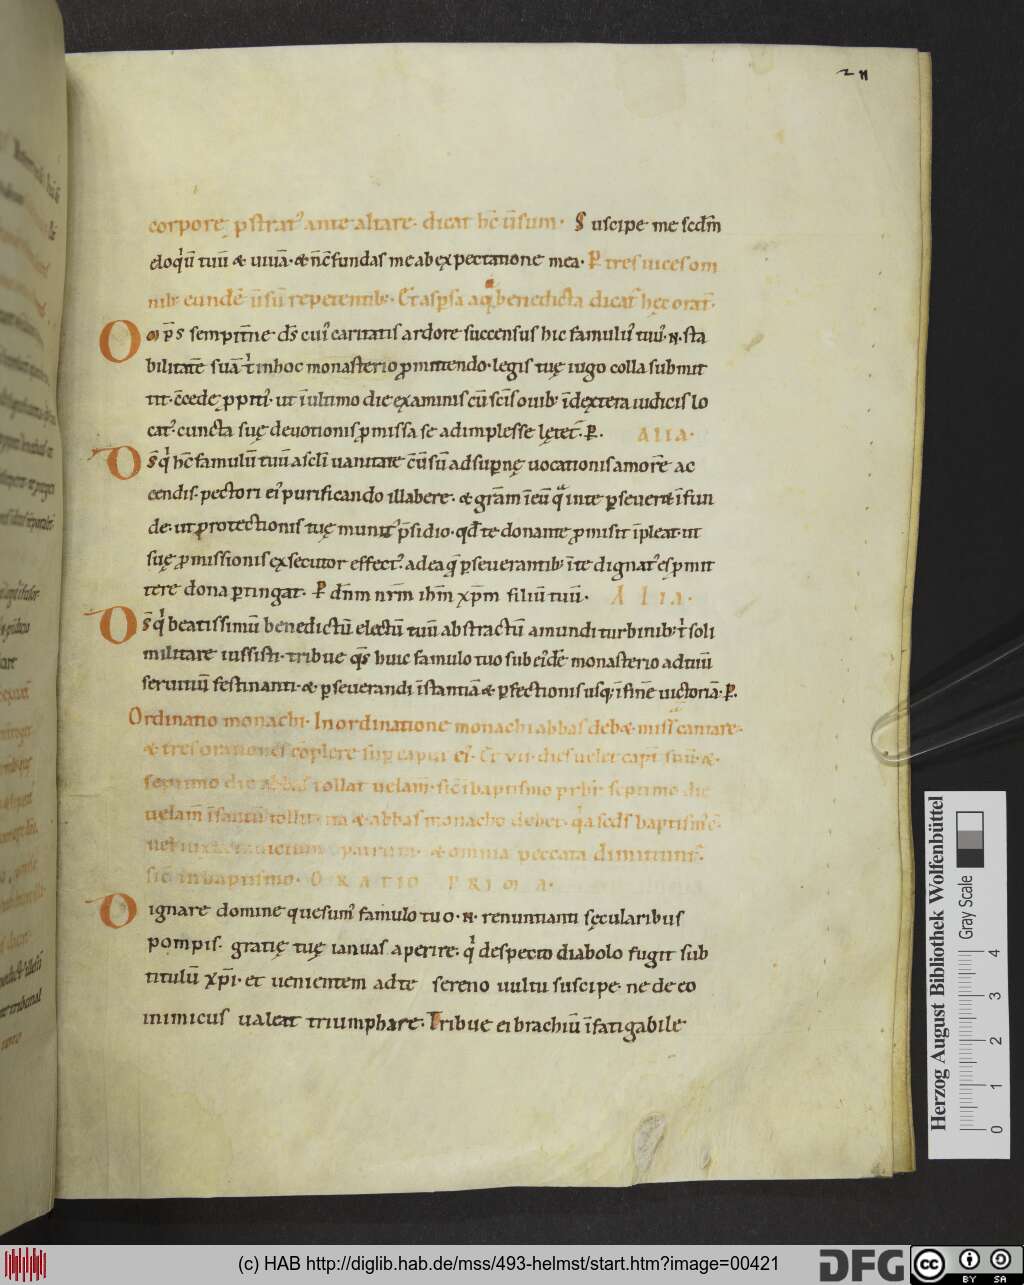 corpore p̄strat᾽ ante altare· dicat hc̄ ūsum· Suscipe me scd̄m
eloqͥū tuū & uiuā·& nc̄fundas me ab expectatione mea· P̄ tres uices om
nib; eundē ūsū repetentib;· Et aspsa aq̄ benedicta dicat᾽ hec orat̄·
Om̄ps̄ sempit̄ne ds̄ cui᾽ caritatis ardore succensus hic famul᾽ tuus᾽·N·sta
bilitatē suā t̄ in hoc monasterio ꝓmittendo·legis tuę iugo colla submit
tit·c̄cede ꝓpiti᾽·ut īultimo die examinis cū sc̄is ouib; īdextera iudicis lo
cat᾽·cuncta suę deuotionis ꝓmissa se adimplesse lętet᾽·P̄. ALIA·
Ds̄ qͥ hc̄ famulū tuū a sc̄li uanitate c̄ūsū ad sup̄nę uocationis amorē ac
cendis·pectori ei᾽ purificando illabere·& grām ī eū qͣ in te pseueret īfun
de·ut ꝓtectionis tuę munit᾽ p̄sidio·qd̄ te donante ꝓmisit īpleat·ut
suę ꝓmissionis exsecutor effect᾽·ad ea q̄ pseuerantib; ī te dignat᾽ es ꝓmit
tere dona ptingat· P dn̄m nrm̄ ihm̄ xp̄m filiū tuū· ALIA·
Ds̄ qͥ beatissimū benedictū electū tuū abstractū a mundi turbinib; t̄ soli
militare iussisti·tribue qs̄ huic famulo tuo sub eidē monasterio ad tuū
seruitiū festinanti·& pseuerandi īstantiā & pfectionis usq; ī finē uictoriā·P̄.
Ordinatio monachi· In ordinatione monachi abbas debet missā cantare·
& tres orationes c̄plere sup caput ei᾽· Et vii·dies uelet capͭ suū·&·
septimo die abbas tollat uelam̄·sic̄ ī baptismo prb̄r septimo die
uelam̄ īfantū tollit·ita & abbas monacho debet·qͥa scd̄s baptism᾽ ē·
& omnia peccata dimittunt᾽·
sic̄ in baptismo· ORATIO PRIMA·
Dignare domine quesum᾽ famulo tuo·N·renuntianti sęcularibus
pompis· gratię tuę ianuas aperire· qͥ despecto diabolo fugit sub
titulū xp̄i· et uenientem ad te sereno uultu suscipe·ne de eo
inimicus ualeat triumphare· Tribue ei brachiū īfatigabile
Herzog August Bibliothek Wolfenbüttel
Gray Scale
0 1 2 3 4
(c) HAB http://diglib.hab.de/mss/493-helmst/start.htm?image=00421
DFG
cc BY SA